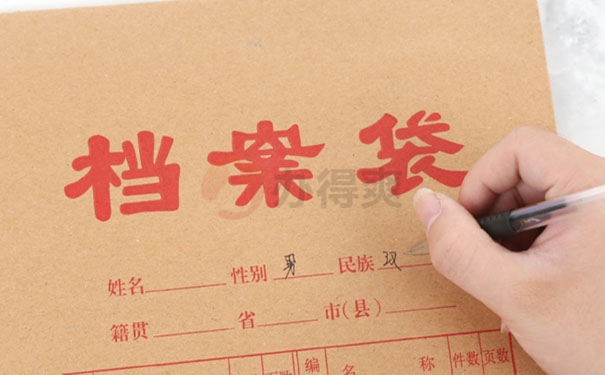 档案袋
办得爽
姓名 性别 男 民族 汉
籍贯 省 市(县)
编 名 称 件数 页数